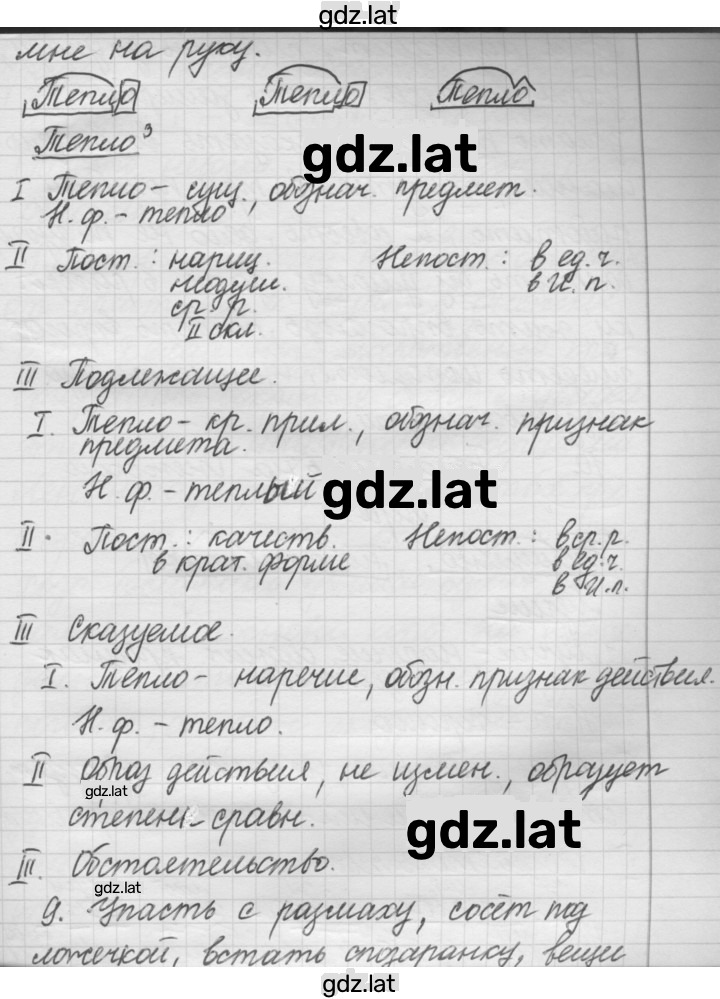 gdz.lat
мне на руку.
Тепло Тепло Тепло
Тепло³
gdz.lat
I Тепло - сущ., обознач. предмет.
Н. ф. - тепло
II Пост.: нариц. Непост.: в ед. ч.
неодуш. в И. п.
ср. р.
II скл.
III Подлежащее.
I. Тепло - кр. прил., обознач. признак
предмета.
Н. ф. - теплый gdz.lat
II. Пост.: качеств. Непост.: в ср. р.
в крат. форме в ед. ч.
в И. п.
III Сказуемое.
I. Тепло - наречие, обозн. признак действия.
Н. ф. - тепло.
II Образ действия, не измен., образует
gdz.lat
степени сравн. gdz.lat
III. Обстоятельство.
gdz.lat
9. Упасть с размаху, сосёт под
ложечкой, встать спозаранку, вещи
gdz.lat